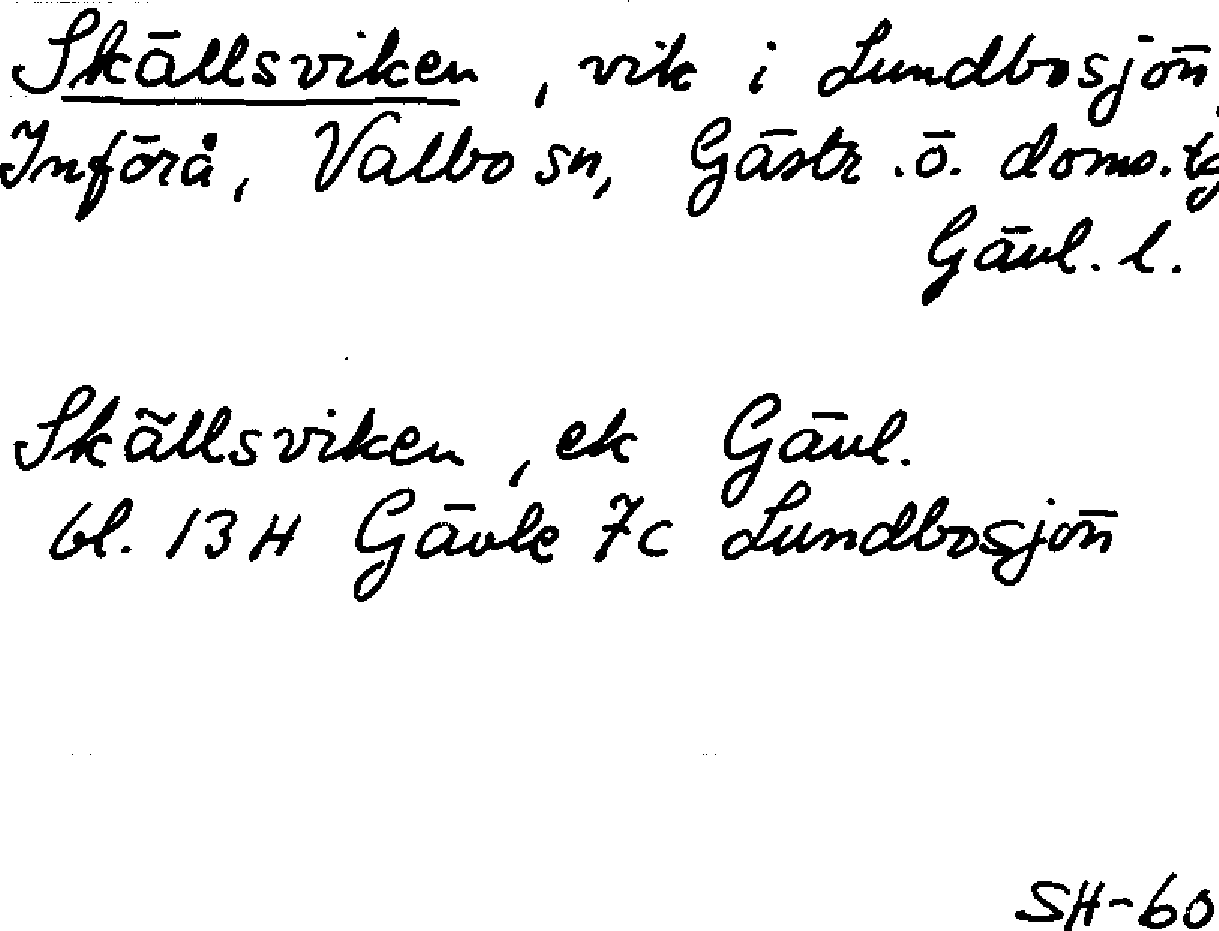 Skällsviken, vik i Lundbosjön,
Införå, Valbo sn, Gästr. ö. doms. tg
Gävl. l.
Skällsviken, ek Gävl.
bl. 13H Gävle 7c Lundbosjön
SH-60